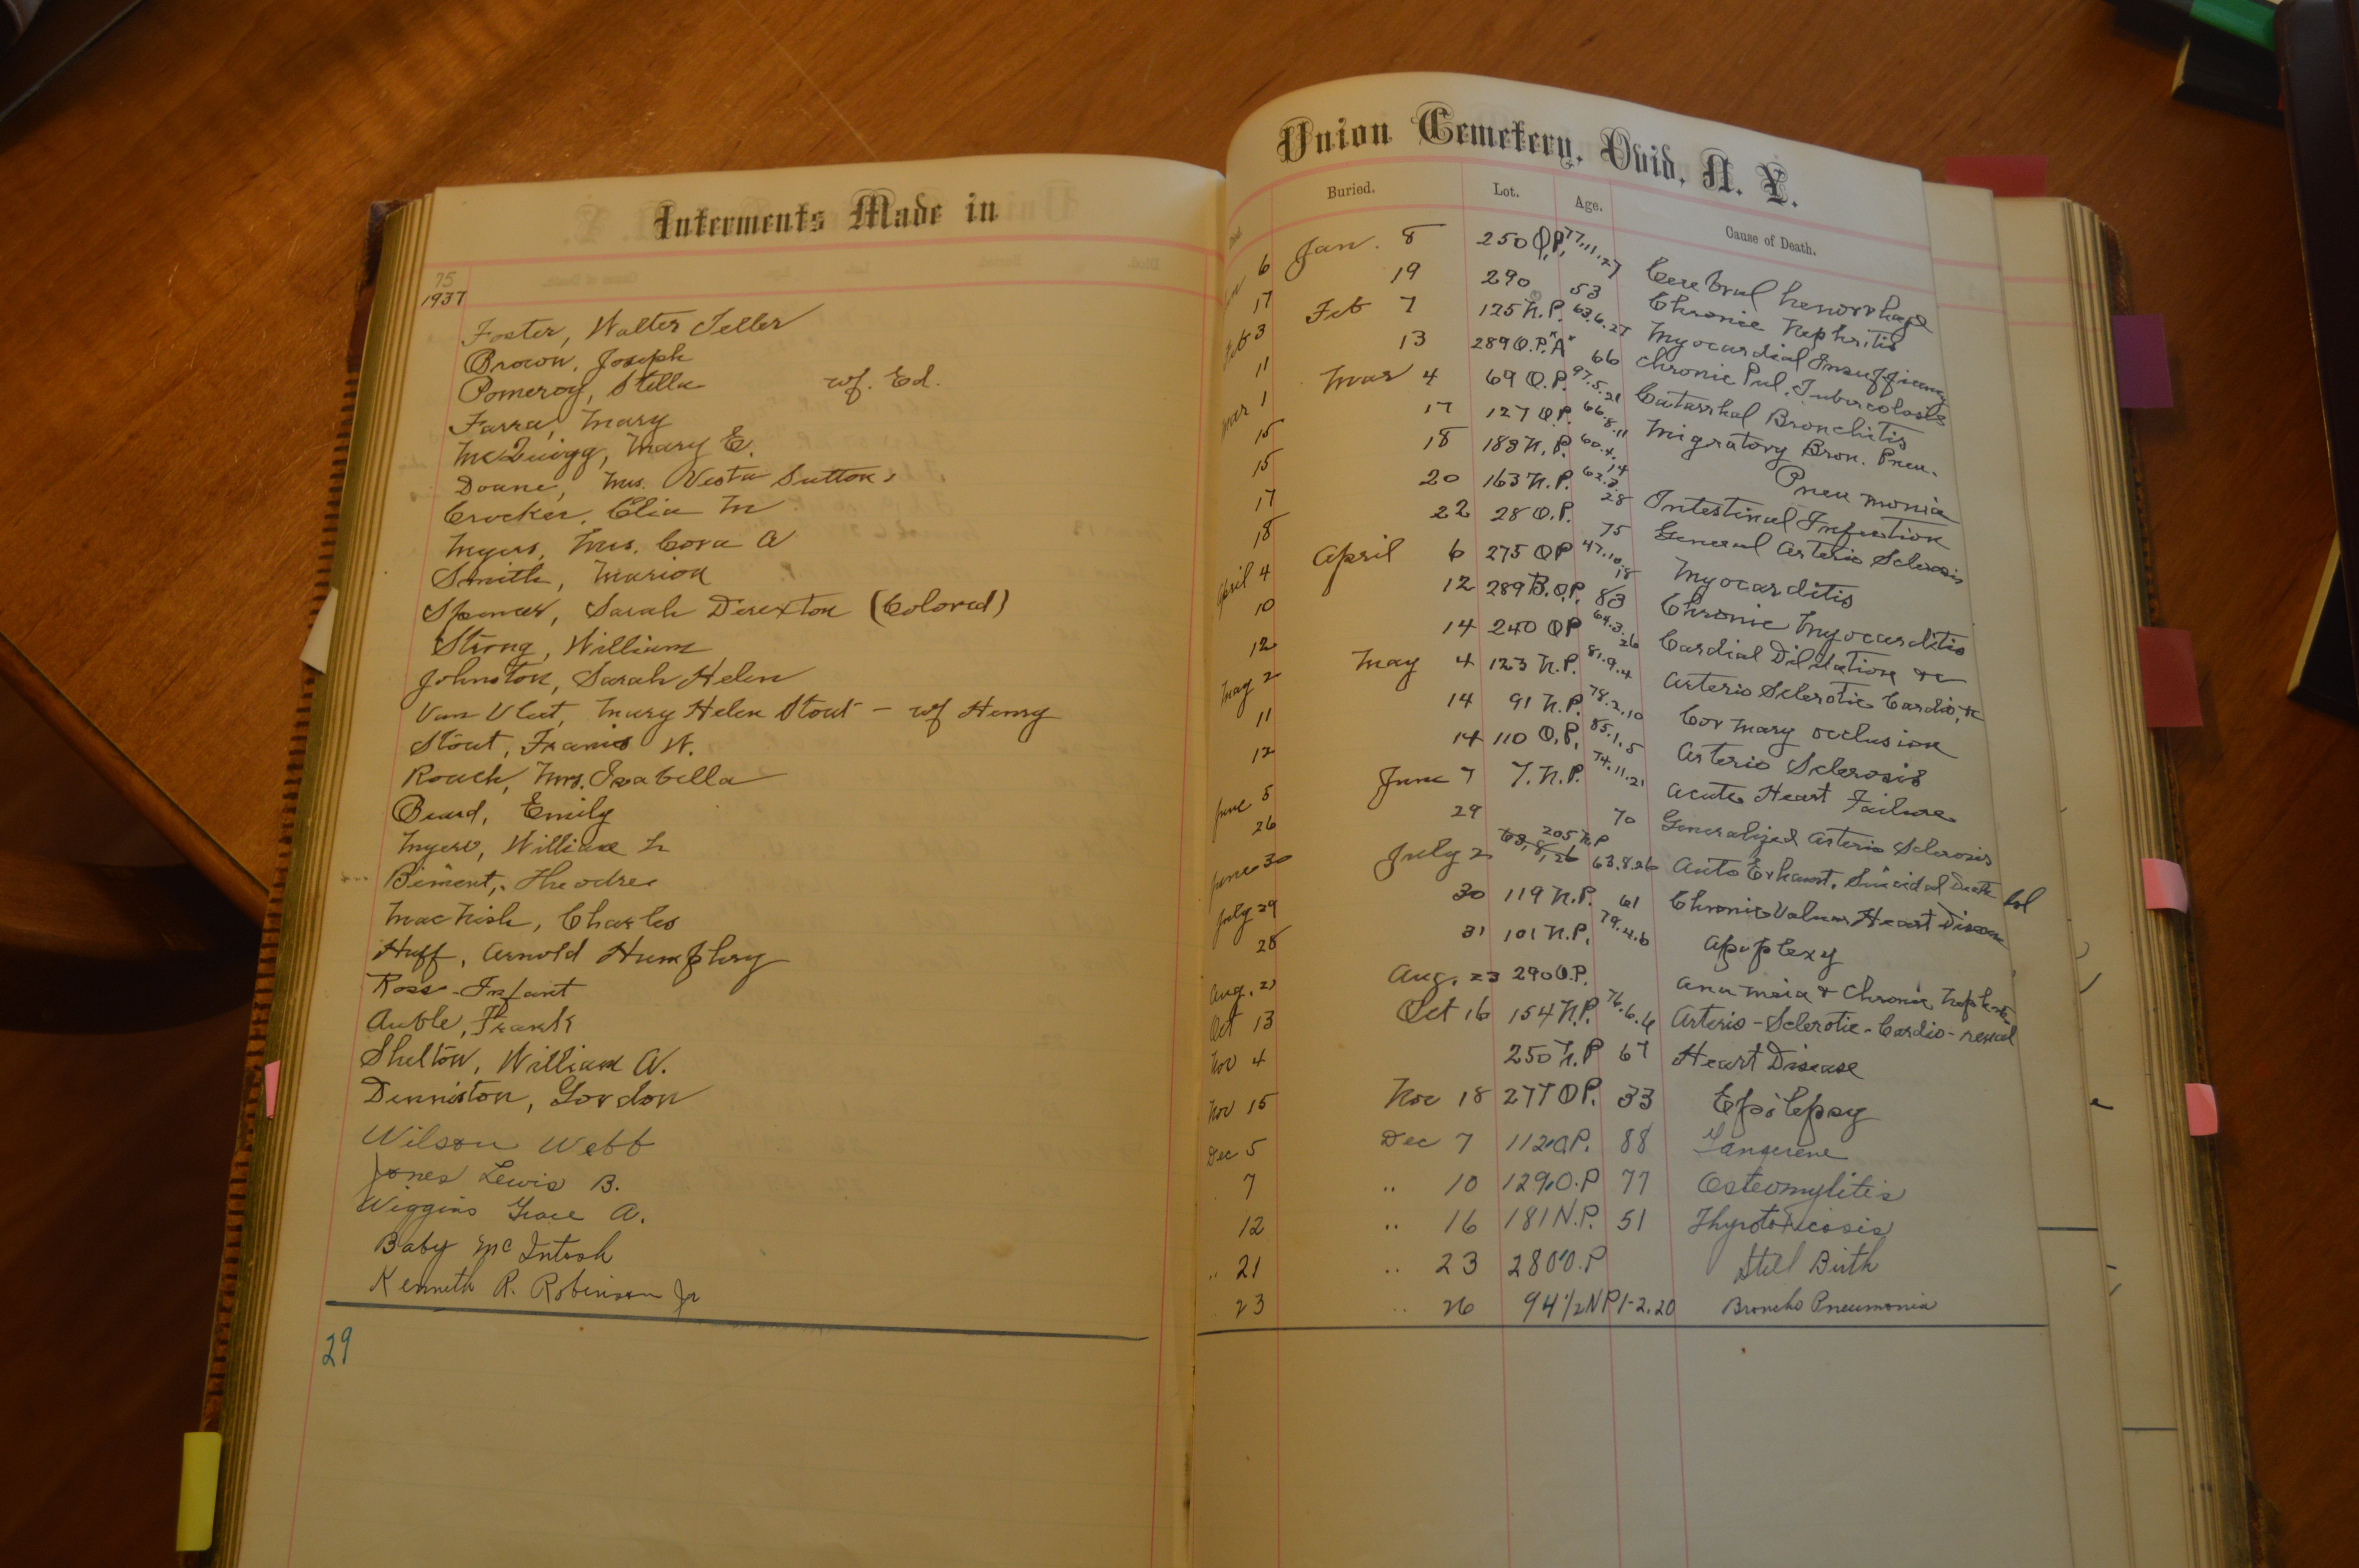 Interments Made in
75
1937
Foster, Walter Teller
Brown, Joseph
Pomeroy, Stella wf. Ed.
Farra, Mary
McQuigg, Mary E.
Doane, Mrs. Vesta Sutton
Crocker, Elia M
Myers, Mrs. Cora A
Smith, Marion
Spencer, Sarah (Colored)
Strong, William
Johnston, Sarah Helen
Van Vleet, Mary Helen Stout - wf Henry
Stout, Francis W.
Roach, Mrs. Isabella
Beard, Emily
Myers, William L
Biment, Theodre
MacNish, Charles
Huff, Arnold Humphry
Ross - Infant
Auble, Frank
Shelton, William A.
Denniston, Gordon
Wilson Webb
Jones Lewis B.
Wiggins Grace A.
Baby McIntosh
Kenneth R. Robinson Jr
29
Union Cemetery, Ovid, N. Y.
Died. Buried. Lot. Age. Cause of Death.
6 Jan. 8 250 O.P. 77.11.27 Cerebral hemorrhage
17 19 290 53 Chronic Nephritis
Feb 3 Feb 7 125 N.P. 63.6.27 Myocardial Insufficiency
11 13 289 O.P. "A" 66 Chronic Pul. Tuberculosis
Mar 1 Mar 4 69 O.P. 97.5.21 Catarrhal Bronchitis
15 17 127 O.P. 66.8.11 Migratory Bron. Pneu.
15 18 183 N.P. 60.4.14 Pneumonia
17 20 163 N.P. 62.3.28 Intestinal Infection
18 22 28 O.P. 75 General Arterio Sclerosis
April 4 April 6 275 O.P. 47.10.18 Myocarditis
10 12 289 B.O.P. 83 Chronic Myocarditis
12 14 240 OP 64.3.26 Cardial Dilitation &c
May 2 May 4 123 N.P. 81.9.4 Arterio Sclerotic Cardio, &c
11 14 91 N.P. 78.2.10 Coronary occlusion
12 14 110 O.P. 85.1.5 Arterio Sclerosis
June 5 June 7 7. N.P. 74.11.21 Acute Heart Failure
26 29 70 Generalized Arterio Sclerosis
June 30 July 2 63,8,26 205 N.P 63.8.26 Auto Exhaust, Suicidal Death
July 29 30 119 N.P. 61 Chronic Heart Disease
28 31 101 N.P. 79.4.6 Apoplexy
Aug. 21 Aug. 23 290 O.P. Chronic
Oct 13 Oct 16 154 N.P. 76.6.6 Arterio-Sclerotic-Cardio-renal
Nov 4 250 N.P 67 Heart Disease
Nov 15 Nov 18 277 O.P. 33 Epilepsy
Dec 5 Dec 7 112 O.P. 88 Gangrene
7 " 10 129 O.P 77 Osteomylitis
12 " 16 181 N.P. 51 Thyrotoxicosis
" 21 " 23 280 O.P Still Birth
" 23 " 26 94 1/2 NP 1-2.20 Broncho Pneumonia